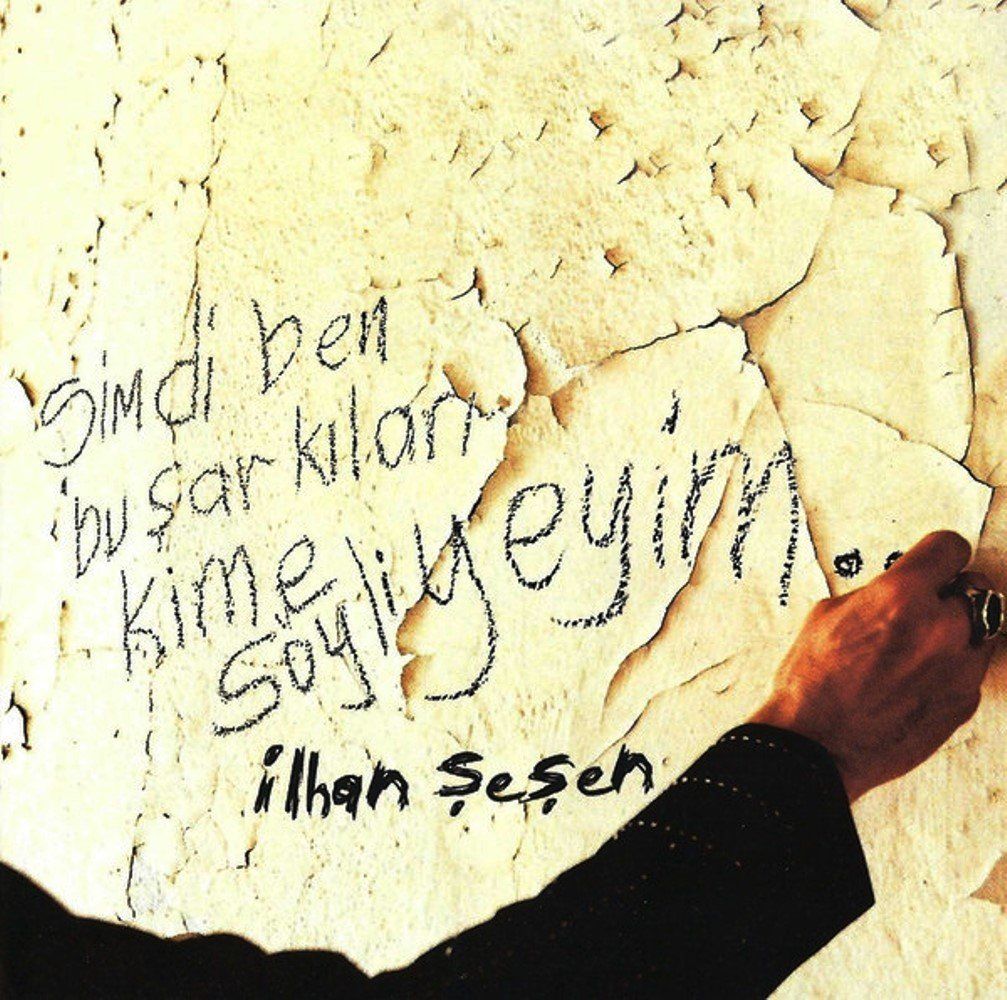 Şimdi ben
bu şarkıları
kime
söyliyeyim..
ilhan şeşen